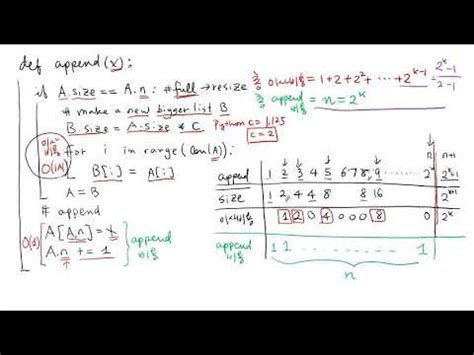 def append(x):
if A.size == A.n: # full → resize
# make a new bigger list B
B.size = A.size * C
Python C = 1.125
C = 2
for i in range(len(A)):
B[i] = A[i]
A = B
# append
A[A.n] = x
A.n += 1
O(|A|)
O(1)
append
= 1 + 2 + 2² + ... + 2^(k-1) =
2^k-1
2-1
append
= n = 2^k
n n+1
append 1 2 3 4 5 6 7 8 9 ........ 2^k
size 1 2 4 4 8 8 16
1 2 0 4 0 0 0 8 0 2^k
append 1 1 ........ 1
n